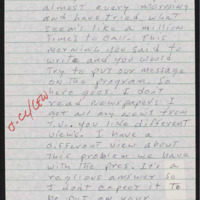 almost every morning
and have tried what
seems like a million
times to call. This
morning you said to
write and you would
try to put our message
on the program. So
here goes. I don't
read newspapers I
get all my news from
T.V. You like different
views. I have a
different view about
this problem we have
with the press. It's a
religious answer so
I don't expect it to
be put on your